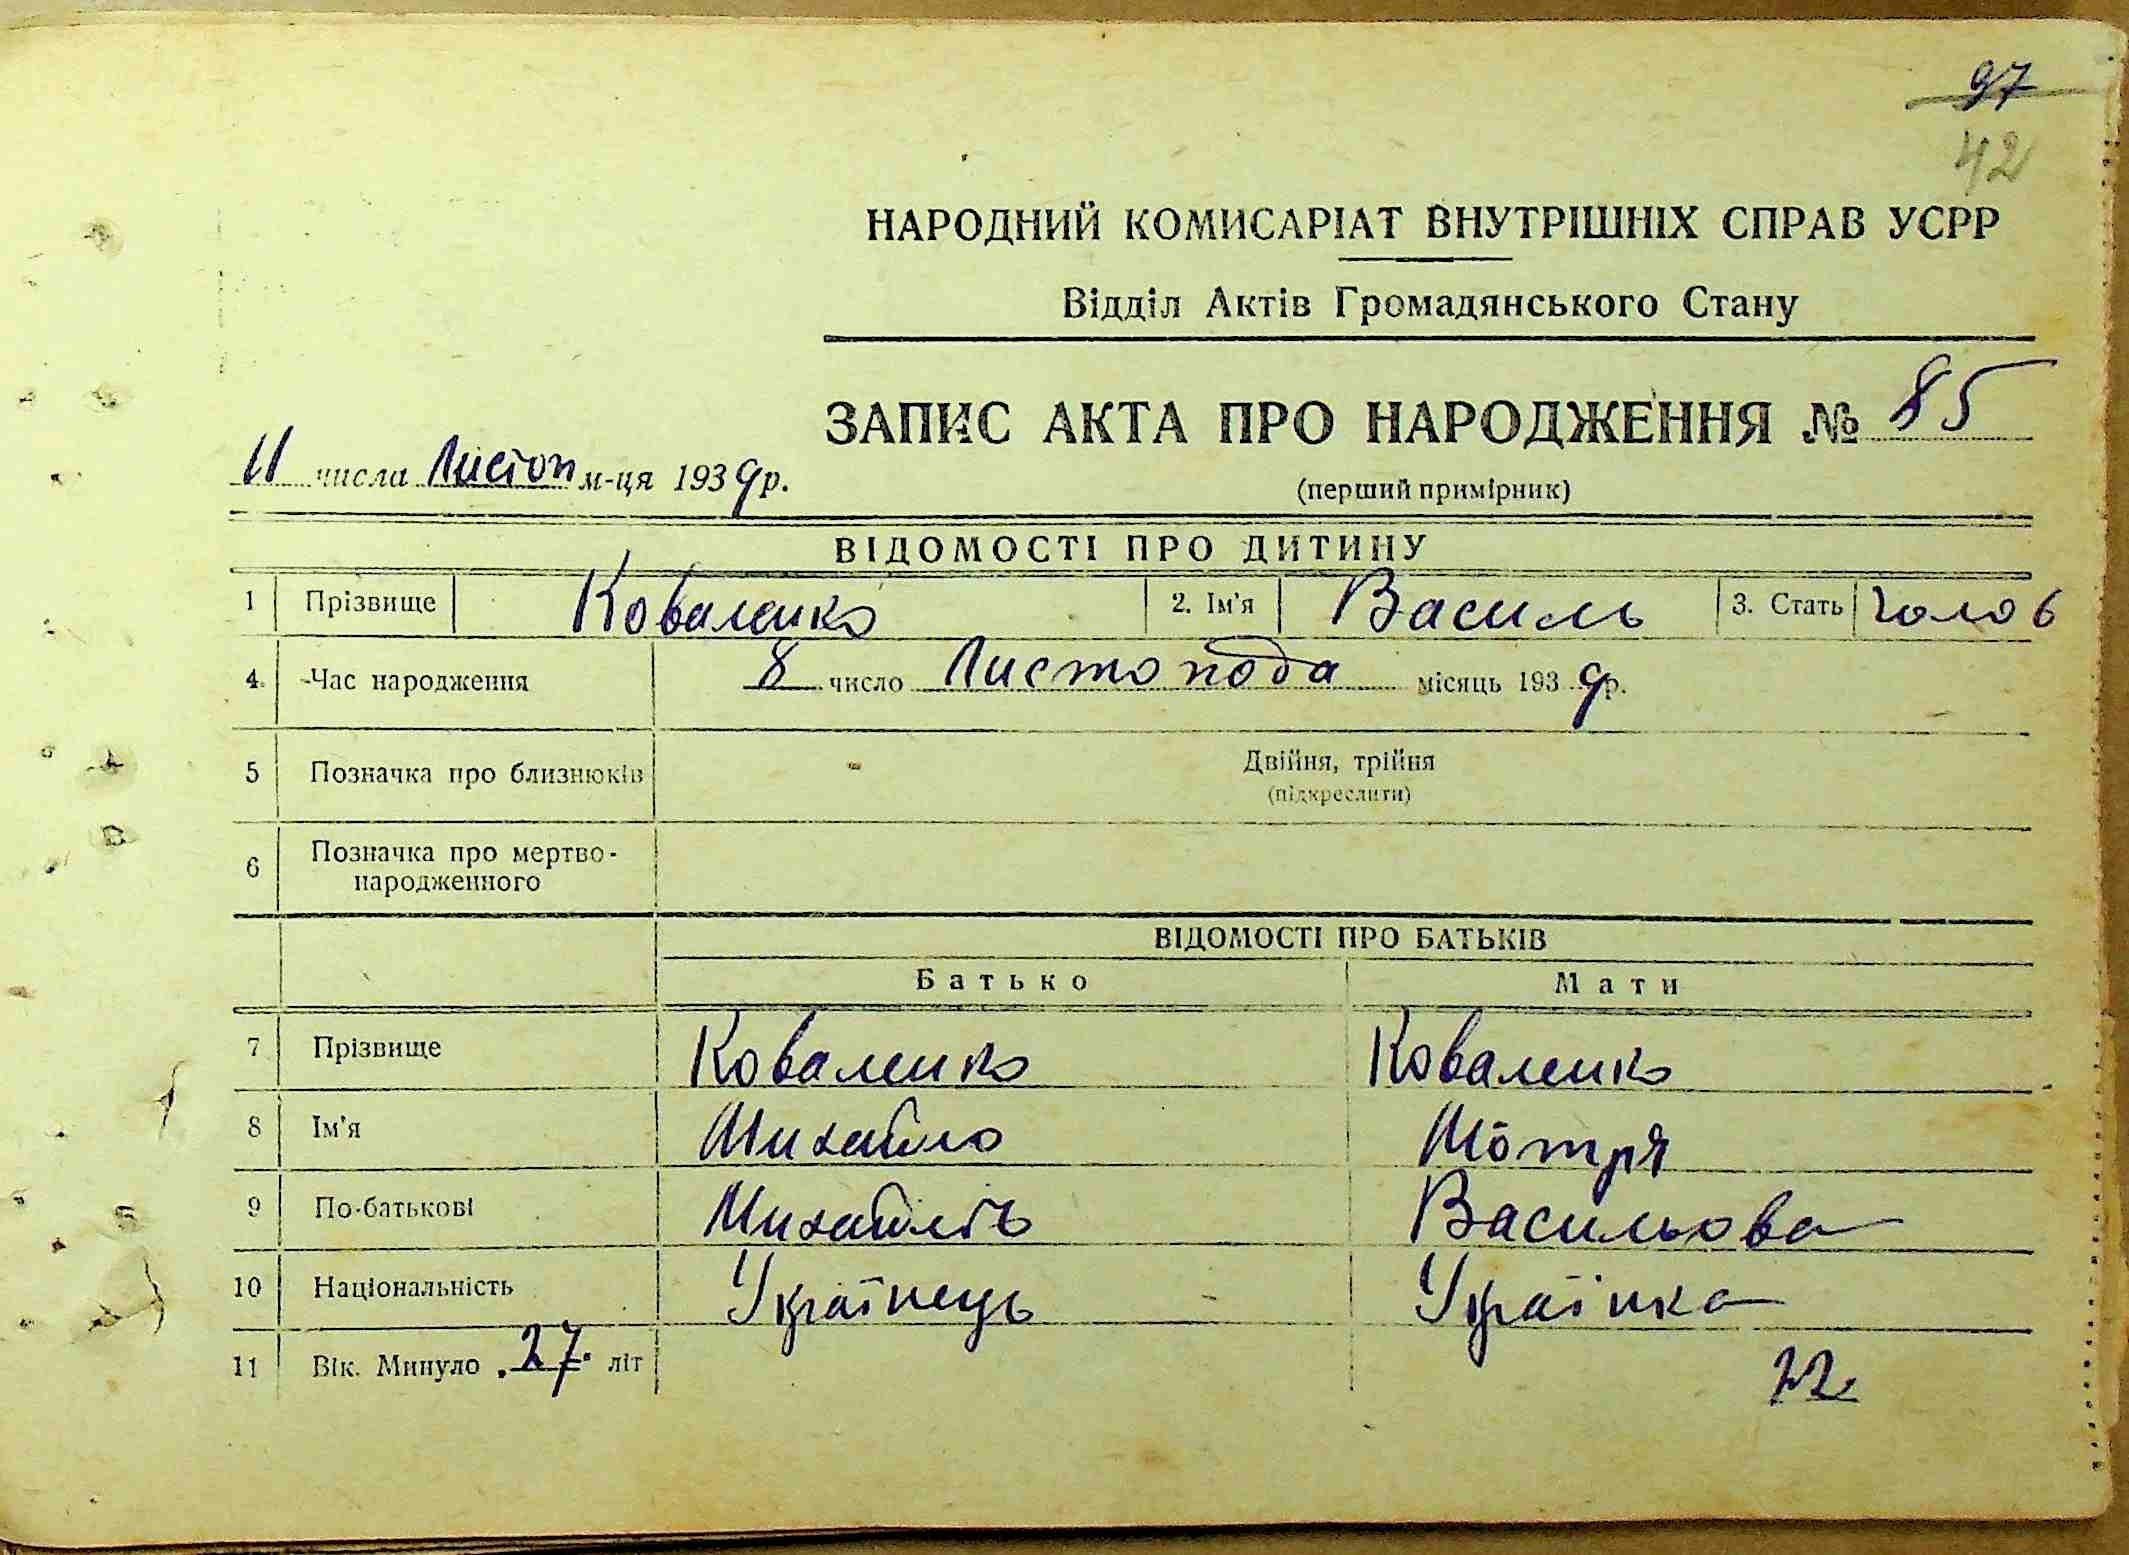 97
42
НАРОДНИЙ КОМИСАРІАТ ВНУТРІШНІХ СПРАВ УСРР
Відділ Актів Громадянського Стану
ЗАПИС АКТА ПРО НАРОДЖЕННЯ № 85
11 числа Листоп м-ця 1939 р.
(перший примірник)
ВІДОМОСТІ ПРО ДИТИНУ
1 Прізвище Коваленко 2. Ім'я Василь 3. Стать чолов
4. Час народження 8 число Листопода місяць 1939 р.
5 Позначка про близнюків Двійня, трійня
(підкреслити)
6 Позначка про мертво-
народженного
ВІДОМОСТІ ПРО БАТЬКІВ
Батько Мати
7 Прізвище Коваленко Коваленко
8 Ім'я Михайло Мотря
9 По-батькові Васильова
10 Національність Українець Українка
11 Вік. Минуло 27 літ 22